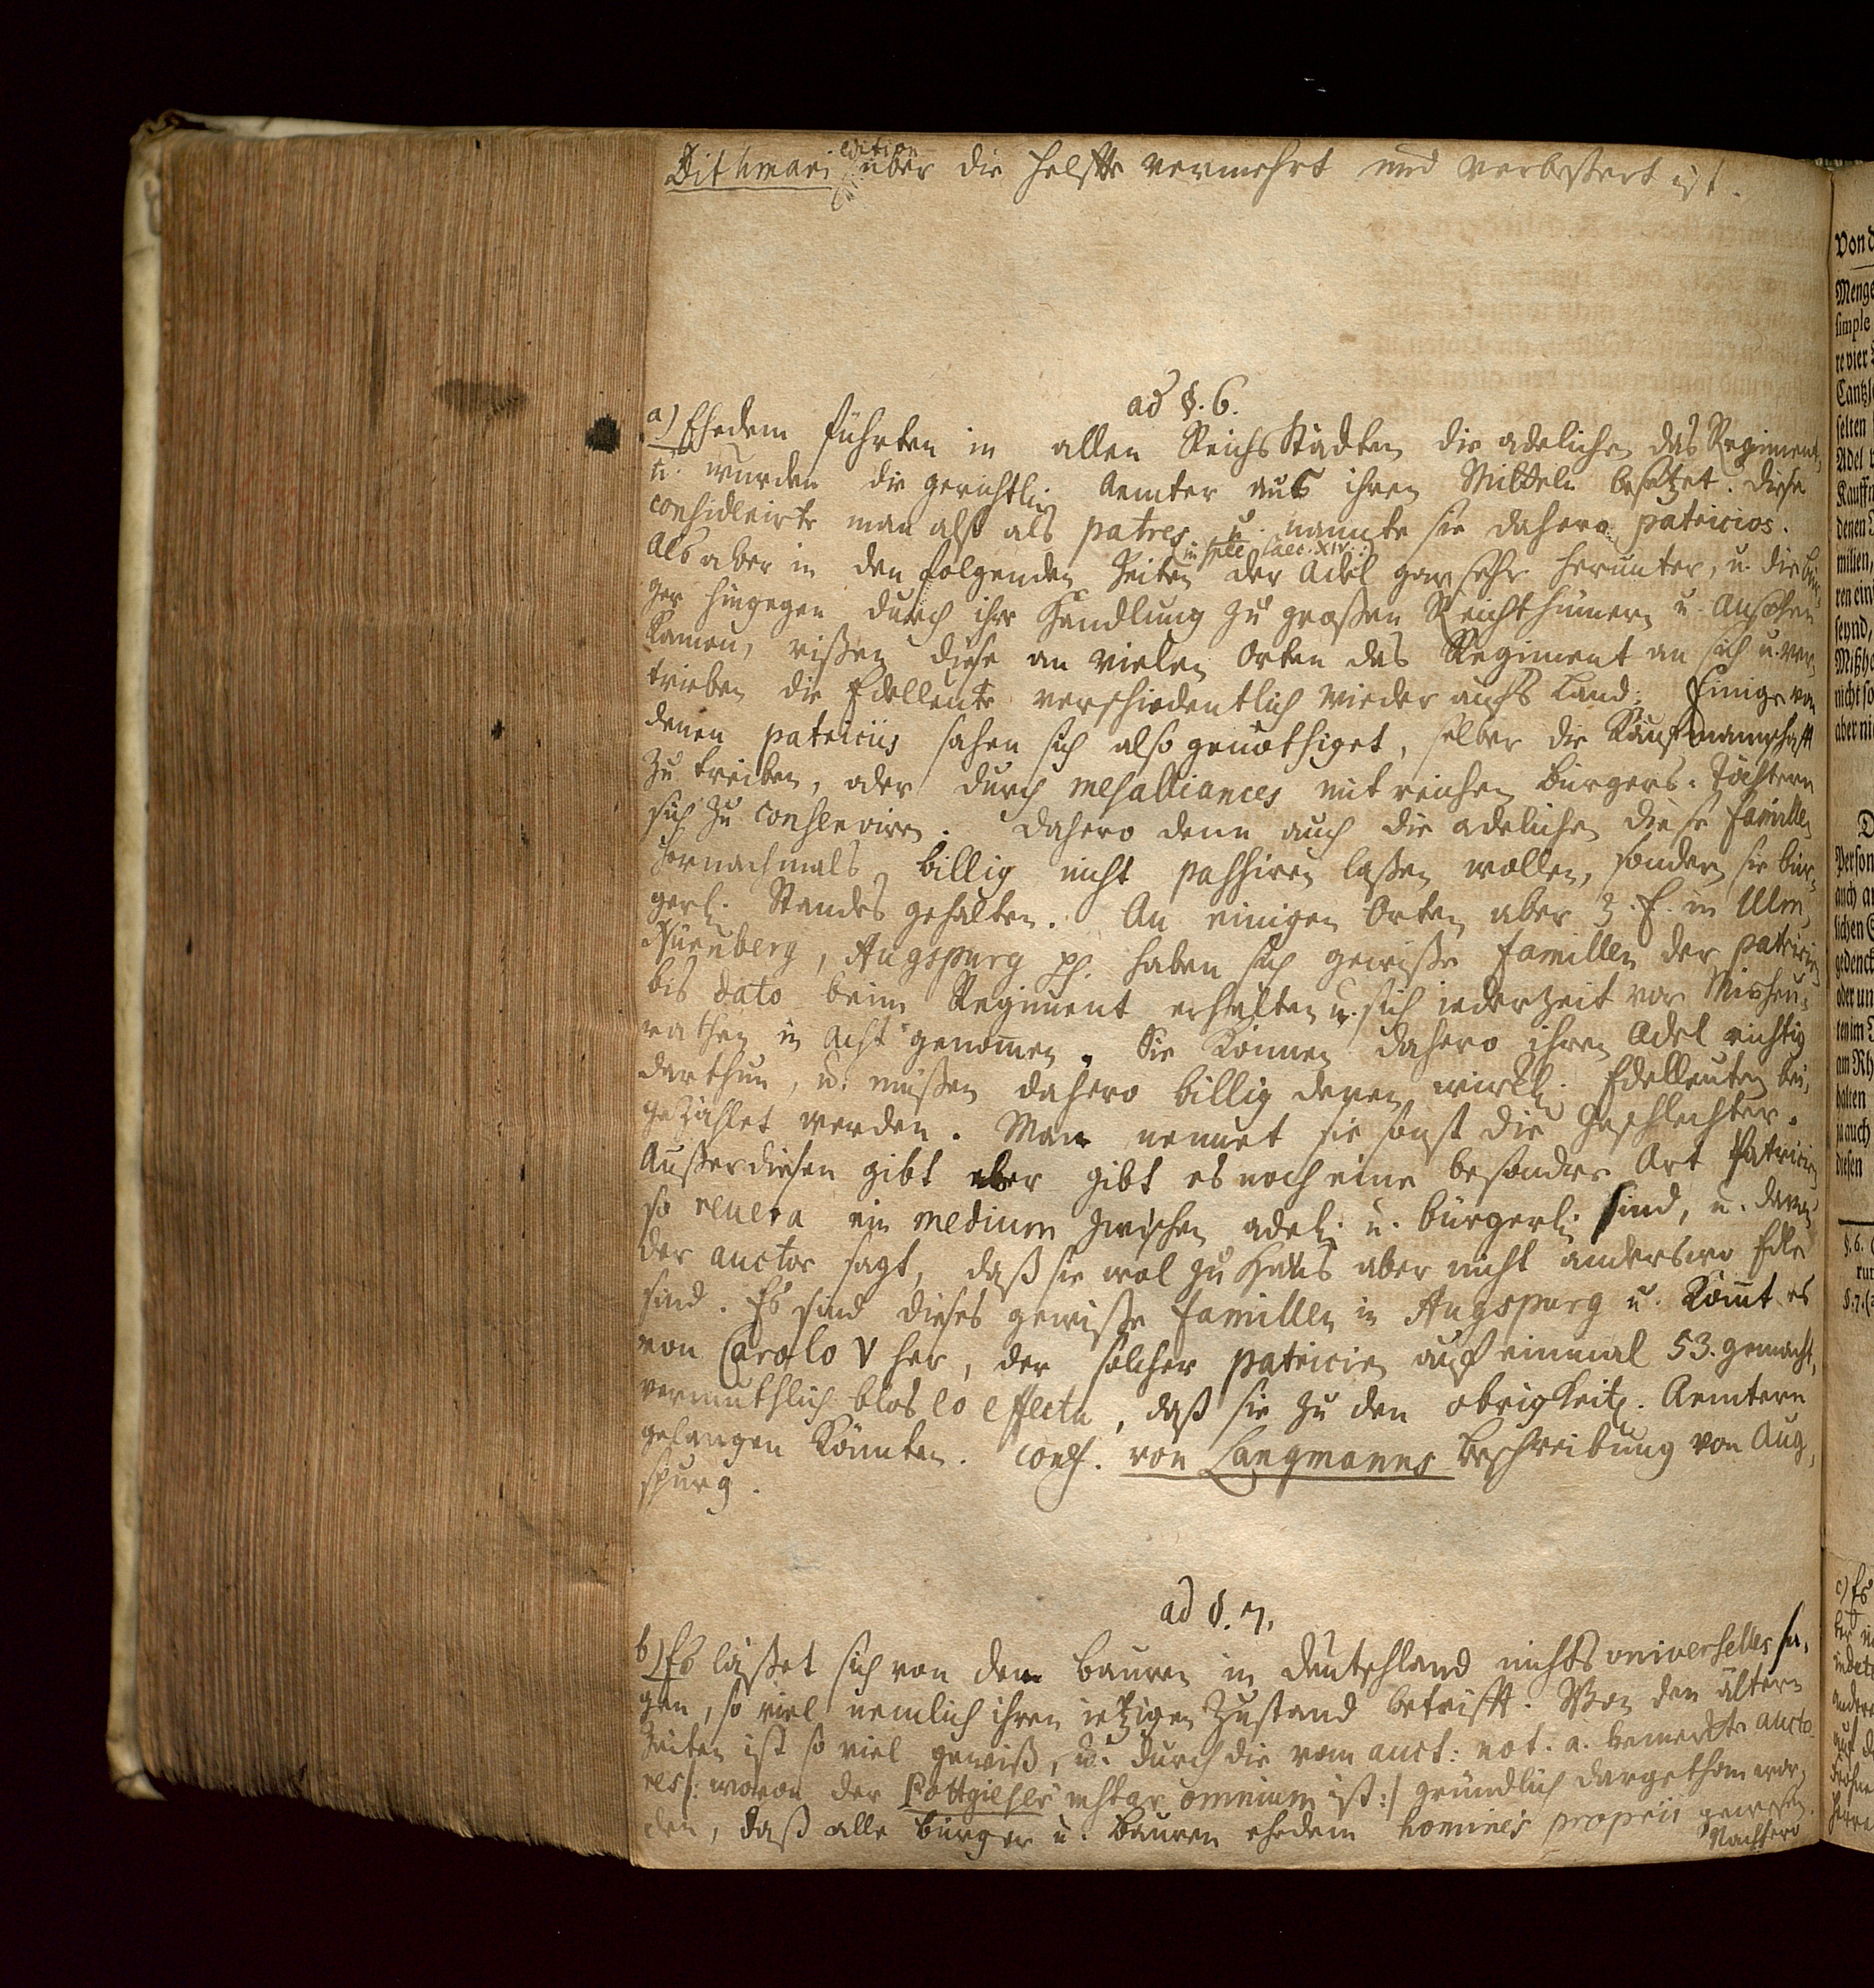 Dithmari edition über die Helffte vermehrt und verbeßert ist.
ad §. 6.
a) Ehedem führten in allen ReichsStädten die adelichen das Regiment,
u. wurden die gerichtlich Aemter aus ihren Mitteln besetzet. Diese
considerirte man also als patres u. nannte sie dahero patricios.
Als aber in den folgenden Zeiten in spec. saec. XIV. der Adel gar sehr herunter, u. die Bür-
ger hingegen durch ihre Handlung zu großen Reichthümern u. Ansehen
kamen, rißen diese an vielen Orten das Regiment an sich u. ver-
trieben die Edelleute verschiedentlich wieder aufs Land; Einige von
denen patriciis sahen sich also genöthiget, selber die Kaufmannschafft
zu treiben, oder durch mesalliances mit reichen Bürgers-Töchtern
sich zu conserviren. Dahero denn auch die adelichen diese Famillen
hernachmals billig nicht passiren laßen wollen, sondern sie bür-
gerl. Standes gehalten. An einigen Orten aber z. E. in Ulm,
Nürnberg, Augspurg pp. haben sich gewiße Famillen der patricien
bis dato beim Regiment erhalten u. sich iederzeit vor Misheu-
rathen in Acht genommen. Sie können dahero ihren Adel richtig
darthun, u. müßen dahero billig denen wirkl. Edelleuten bei-
gezählet werden. Man nennet sie sonst die Geschlechter.
Außer diesen gibt aber gibt es noch eine besondre Art Patricien
so revera ein medium zwischen adel. u. bürgerl. sind, u. denen
der auctor sagt, daß sie wol zu Haus aber nicht anderswo Edle
sind. Es sind dieses gewiße Famillen in Augspurg u. kömt es
von Carolo V her, der solcher patricien auf einmal 53. gemacht,
vermuthlich blos eo effectu, daß sie zu den obrigkeitl. Aemtern
gelangen könnten. conf. von Langmanns Beschreibung von Aug-
spurg.
ad §. 7.
b) Es läßet sich von den Bauren in Deutschland nichts universelles sa-
gen, so viel nemlich ihren ietzigen Zustand betrifft. Von den ältern
Zeiten ist so viel gewiß, u. durch die vom auct: not. a. bemerkte aucto-
res /: wovon der Pottgießer instar omnium ist :/ gründlich dargethan wor-
den, daß alle Bürger u. Bauren ehedem homines proprii gewesen.
Nachhero